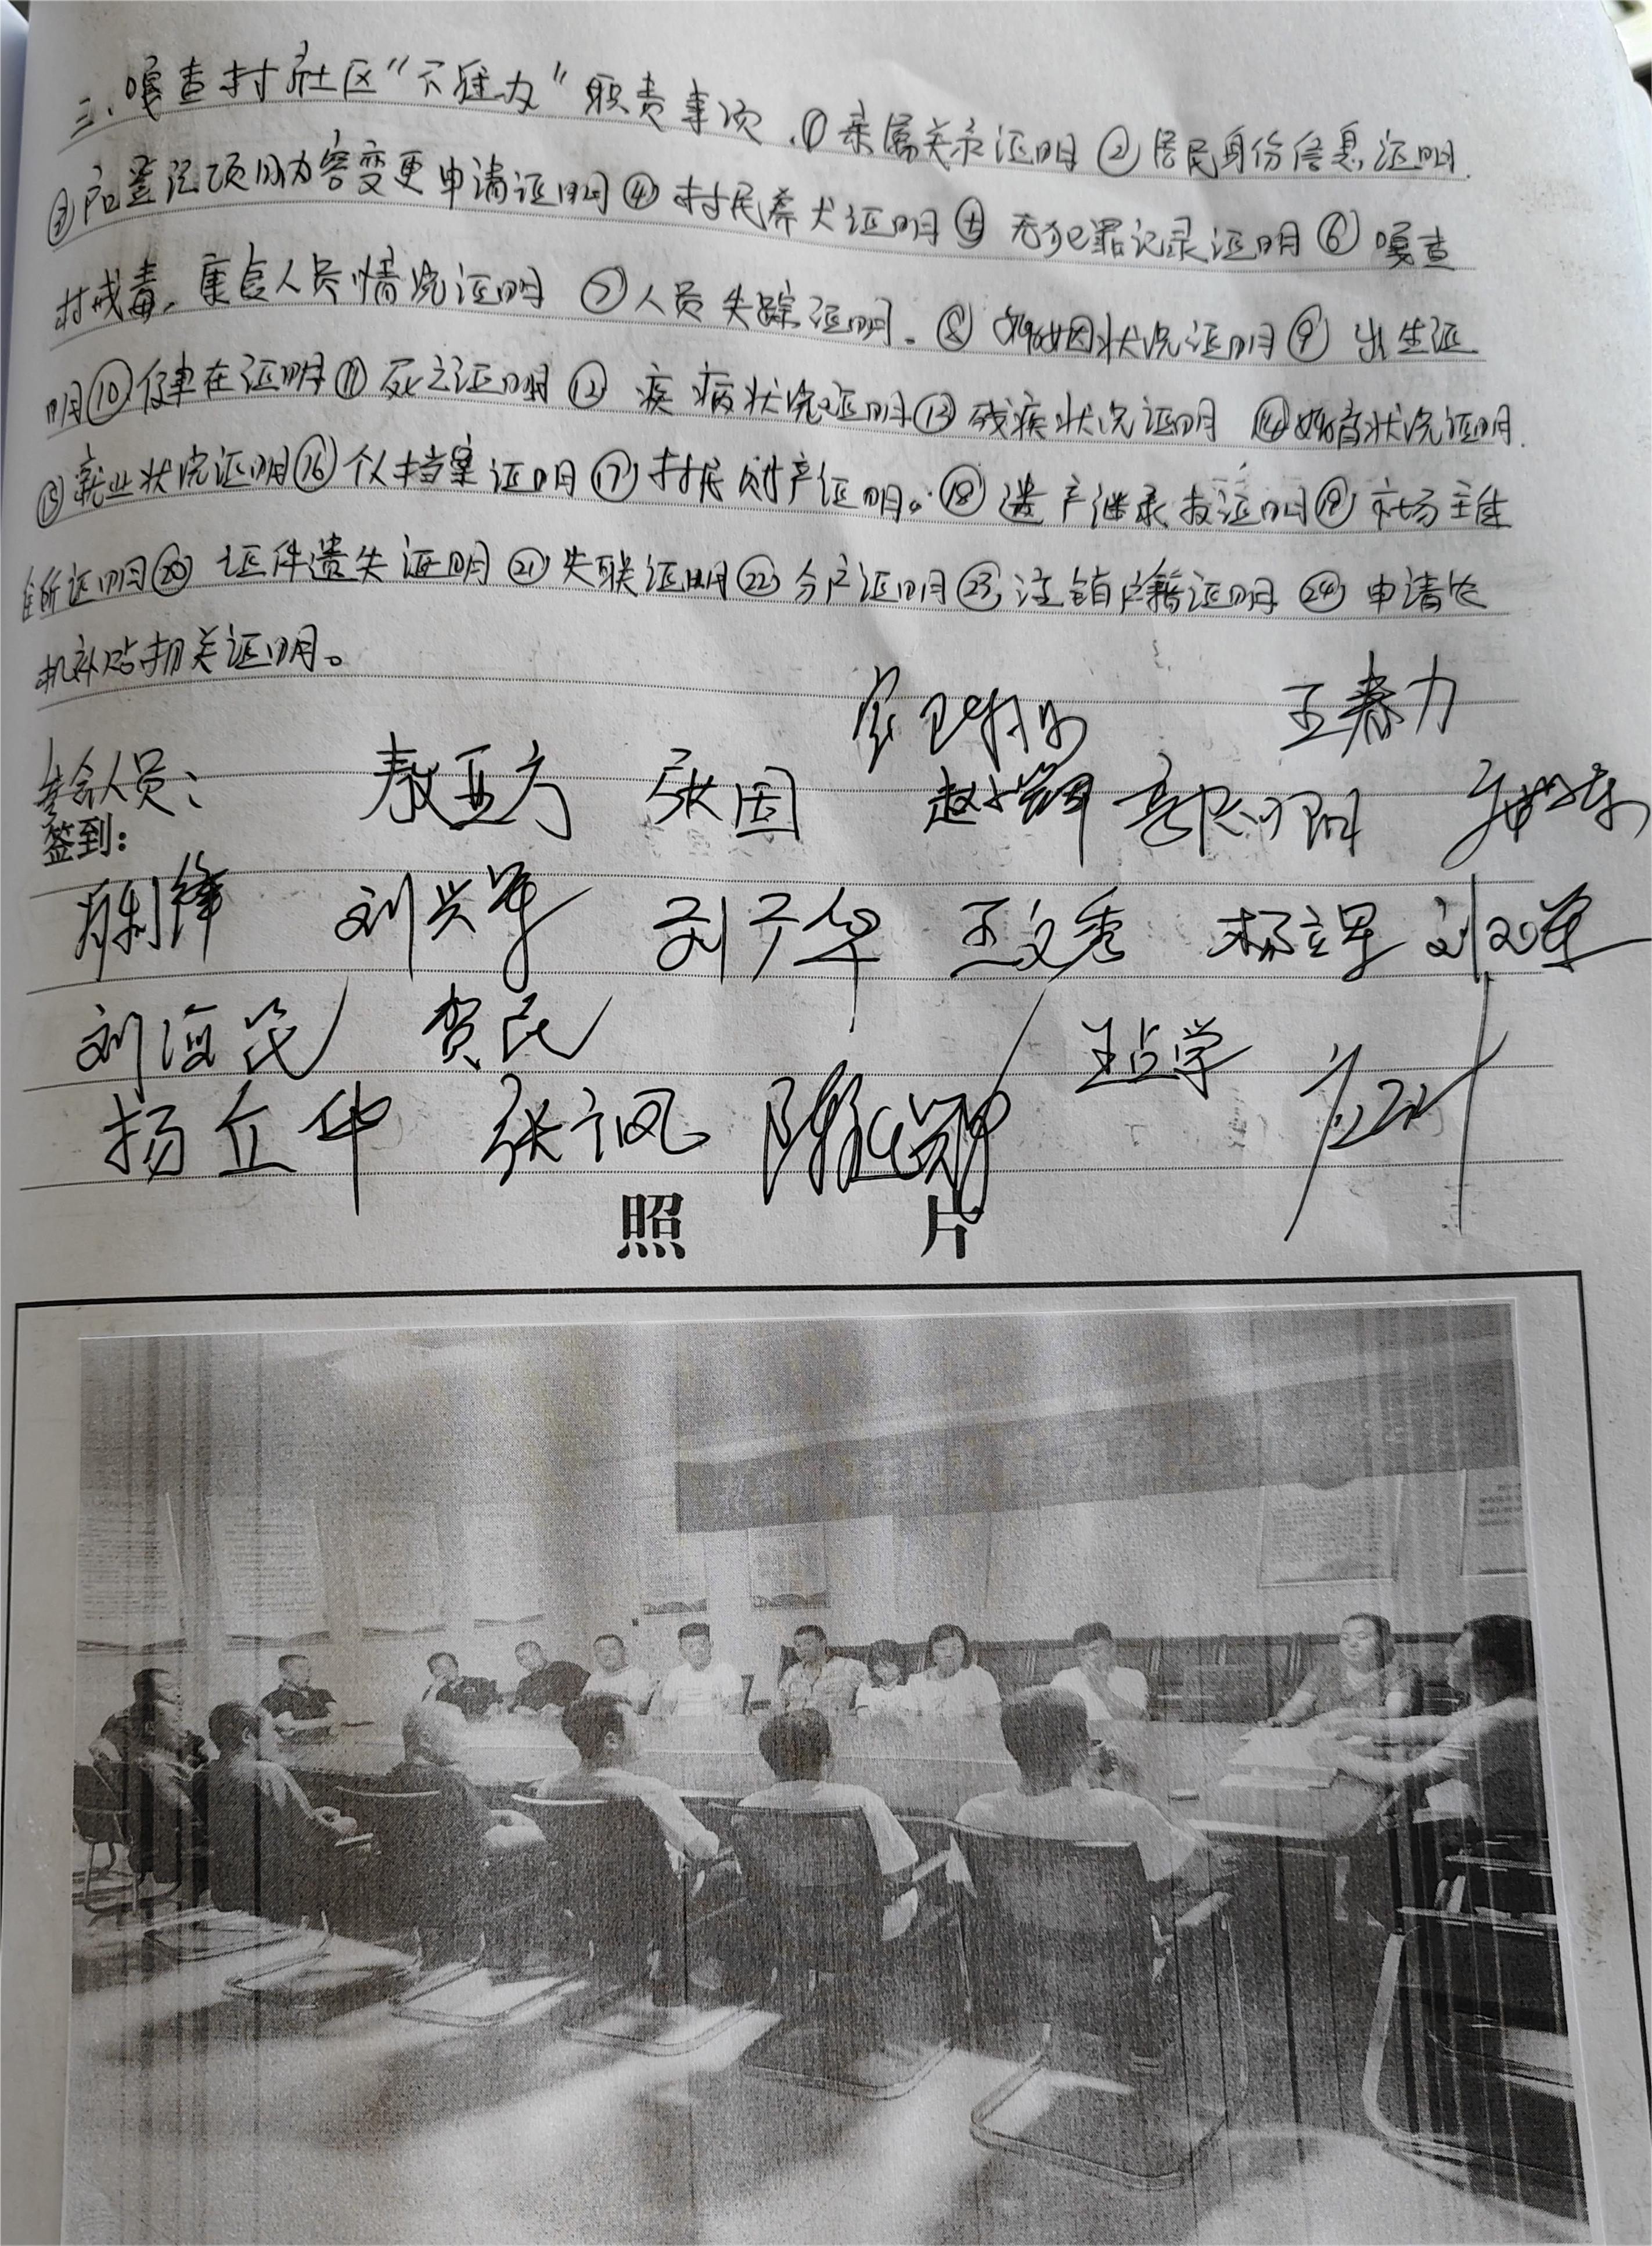 三、嘎查村社区“不准办”职责事项.①亲属关系证明②居民身份信息证明.
③户口登记项目内容变更申请证明④村民养犬证明⑤无犯罪记录证明⑥嘎查
村戒毒、康复人员情况证明 ⑦人员失踪证明.⑧婚姻状况证明⑨出生证
明⑩健在证明⑪死亡证明⑫疾病状况证明⑬残疾状况证明 ⑭婚育状况证明.
⑮就业状况证明⑯个人档案证明⑰村民财产证明。⑱遗产继承权证明⑲市场主体
住所证明⑳证件遗失证明㉑失联证明㉒分户证明㉓注销户籍证明㉔申请农
机补贴相关证明。
王春力
参会人员: 敖亚方 张国 赵
签到:
刘兴军 刘广华 王文秀 杨立军 刘文军
刘海民 贺民 王占学
杨立华 张广凤
照 片